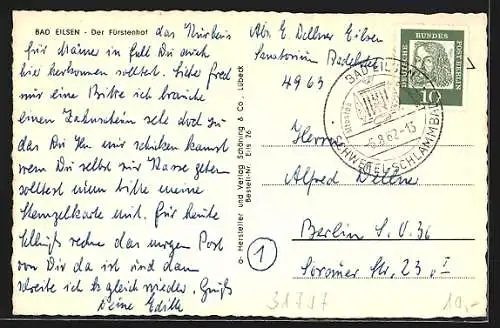 BAD EILSEN - Der Fürstenhof das Kurheim
für Männer in fall Du auch
hier herkommen solltest. Liebe fred
nur eine Bitte ich brauche
einen Zahnschein sehe doch zu
das Du ihn mir schicken kannst
wenn Du selbst zur Kasse gehen
solltest nimm bitte meine
Stempelkarte mit. Für heute
Schluß rechne das morgen Post
von Dir da ist und dann
schreibe ich gleich wieder. Gruß
Deine Edith
a- Hersteller und Verlag Schöning & Co., Lübeck
Bestell-Nr. Eils 26
Abs. E. Dellner Eilsen
Sanatorium
4963
DEUTSCHE BUNDESPOST BERLIN
10
BAD EILSEN
-6.8.62-15
SCHWEFEL-SCHLAMMBAD
Herrn
Alfred Dellner
Berlin S.O. 36
Sorauer Str. 23 I
1
31717
10,-